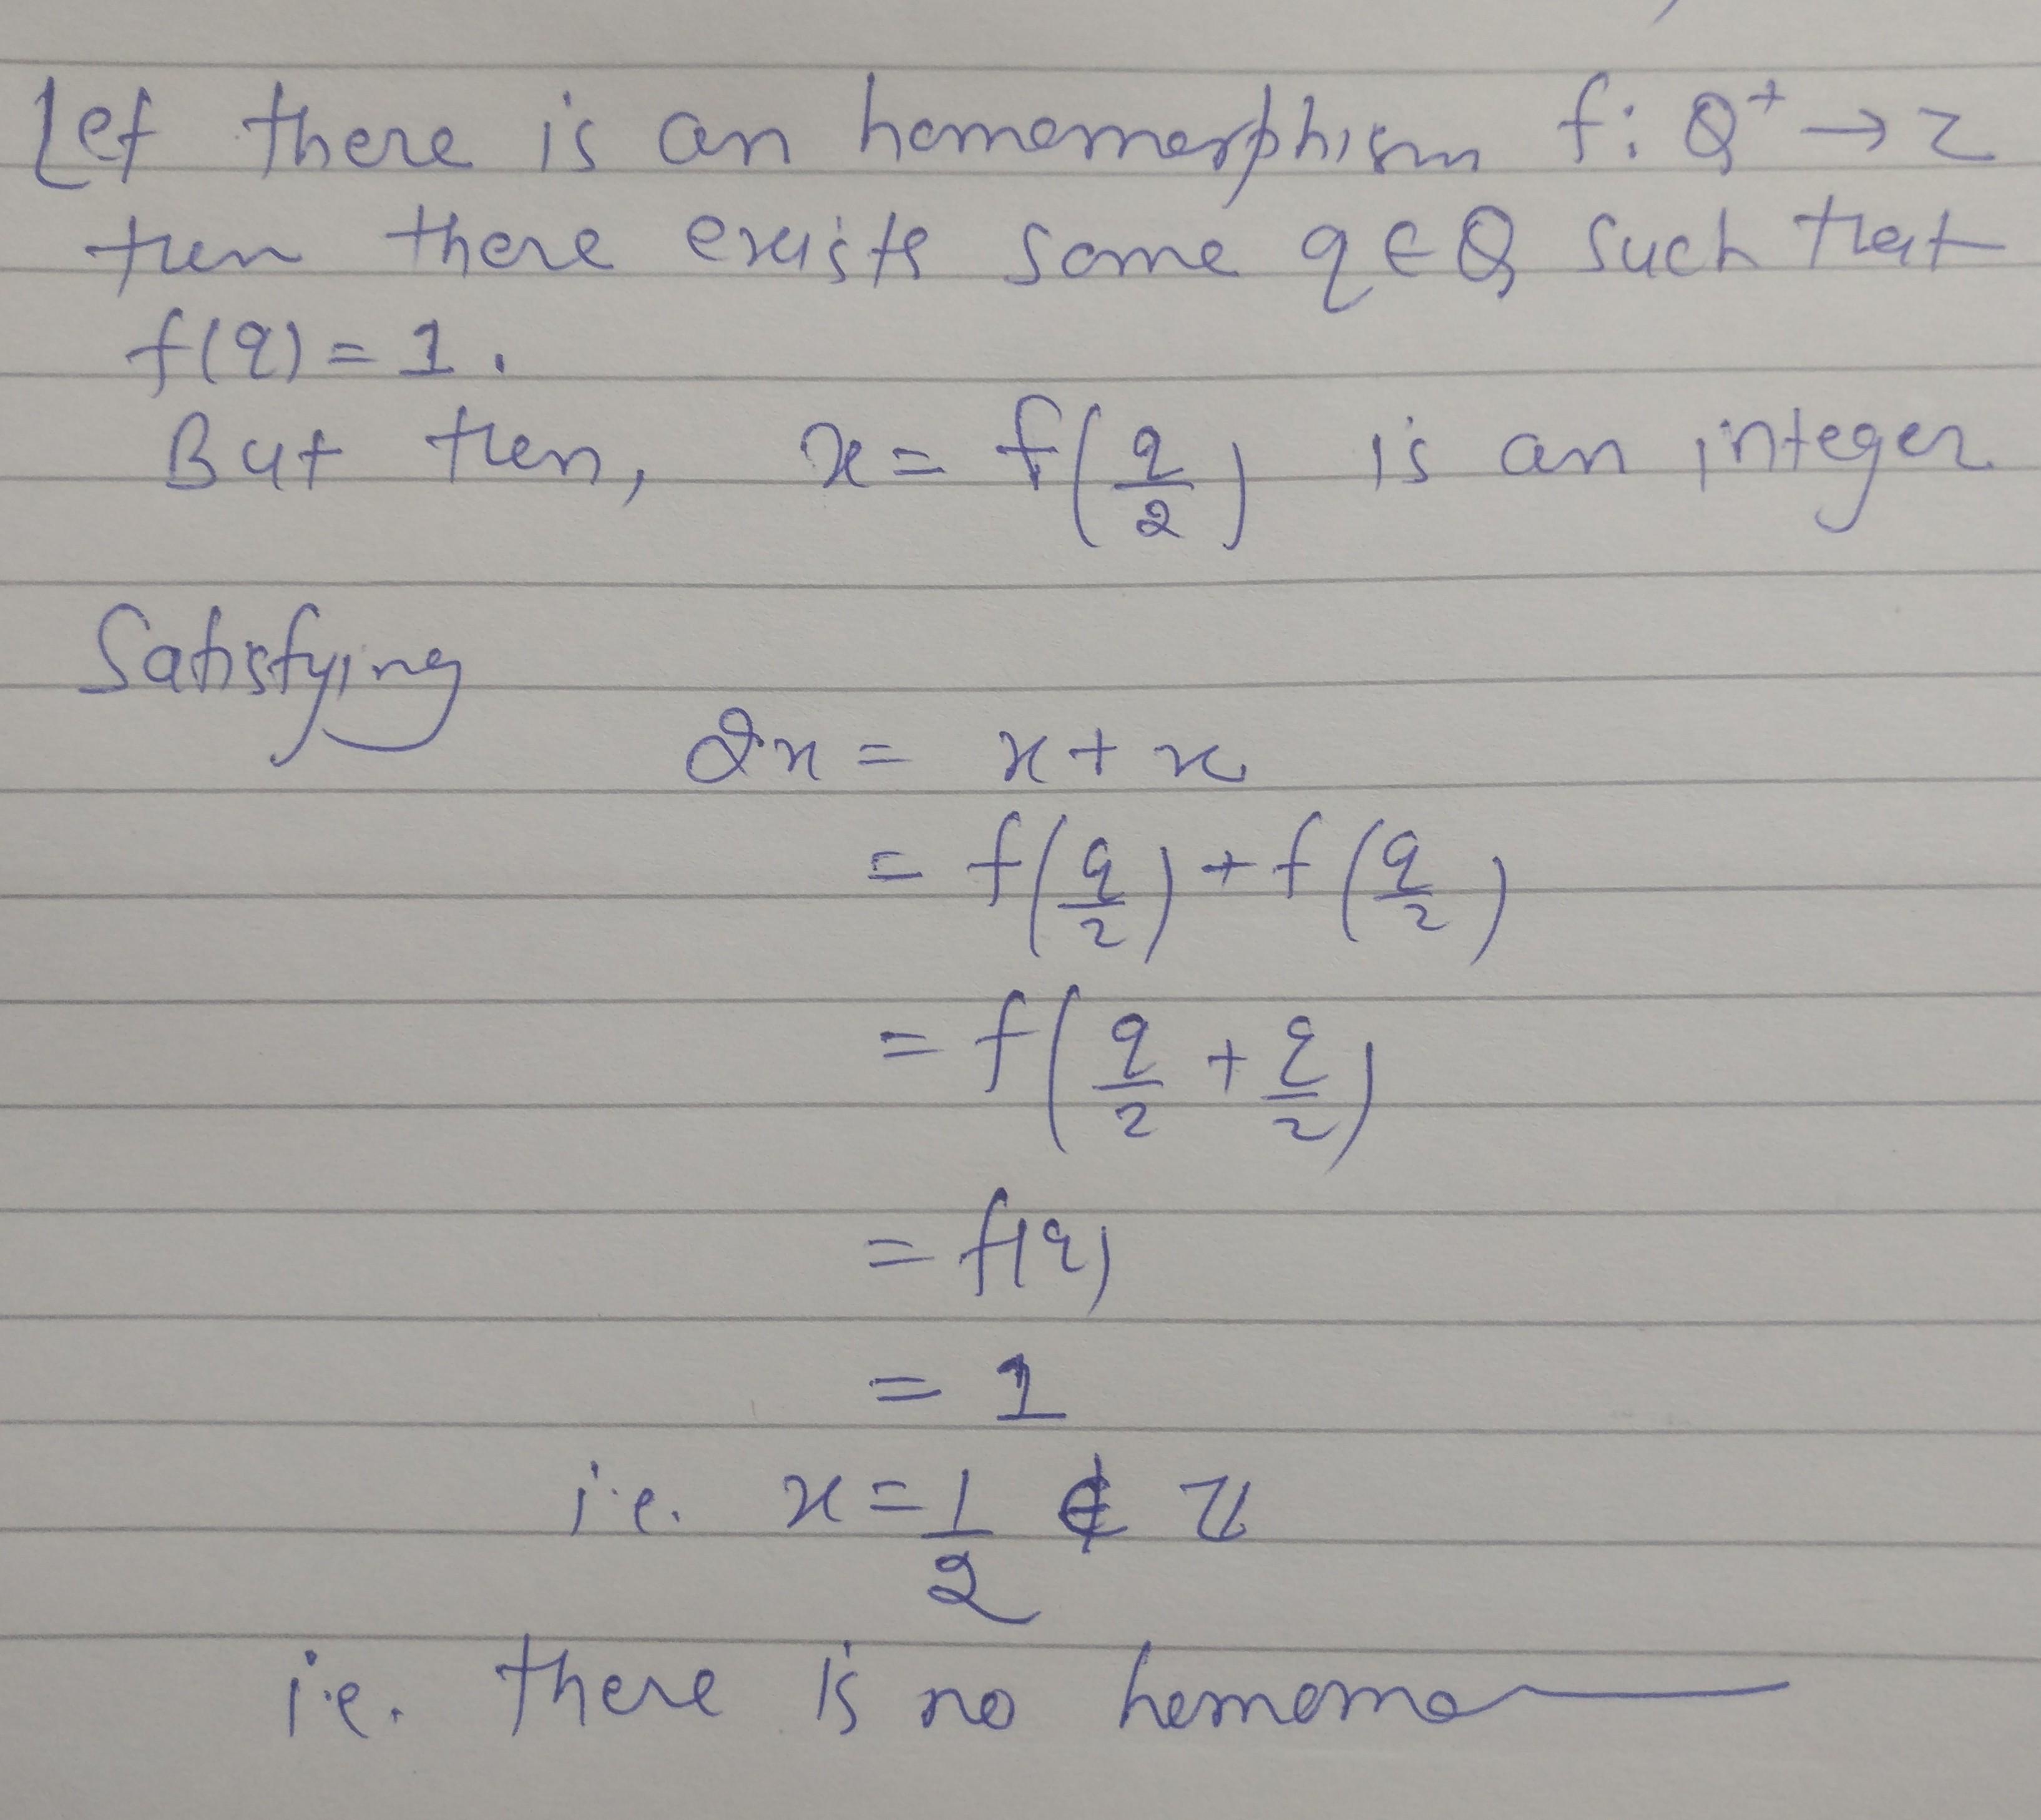 Let there is an homomorphism f: Q⁺ → Z
then there exists some q ∈ Q such that
f(q) = 1.
But then, x = f(q/2) is an integer
Satisfying
2x = x + x
= f(q/2) + f(q/2)
= f(q/2 + q/2)
= f(q)
= 1
i.e. x = 1/2 ∉ Z
i.e. there is no homomo